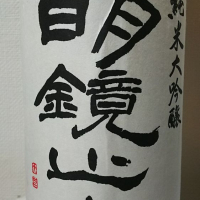 純米大吟醸
明鏡止